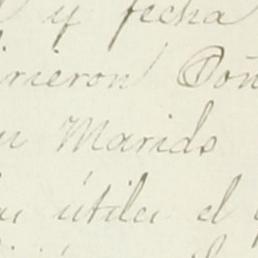 y fecha
inieron Doñ
u Marido
útiles el